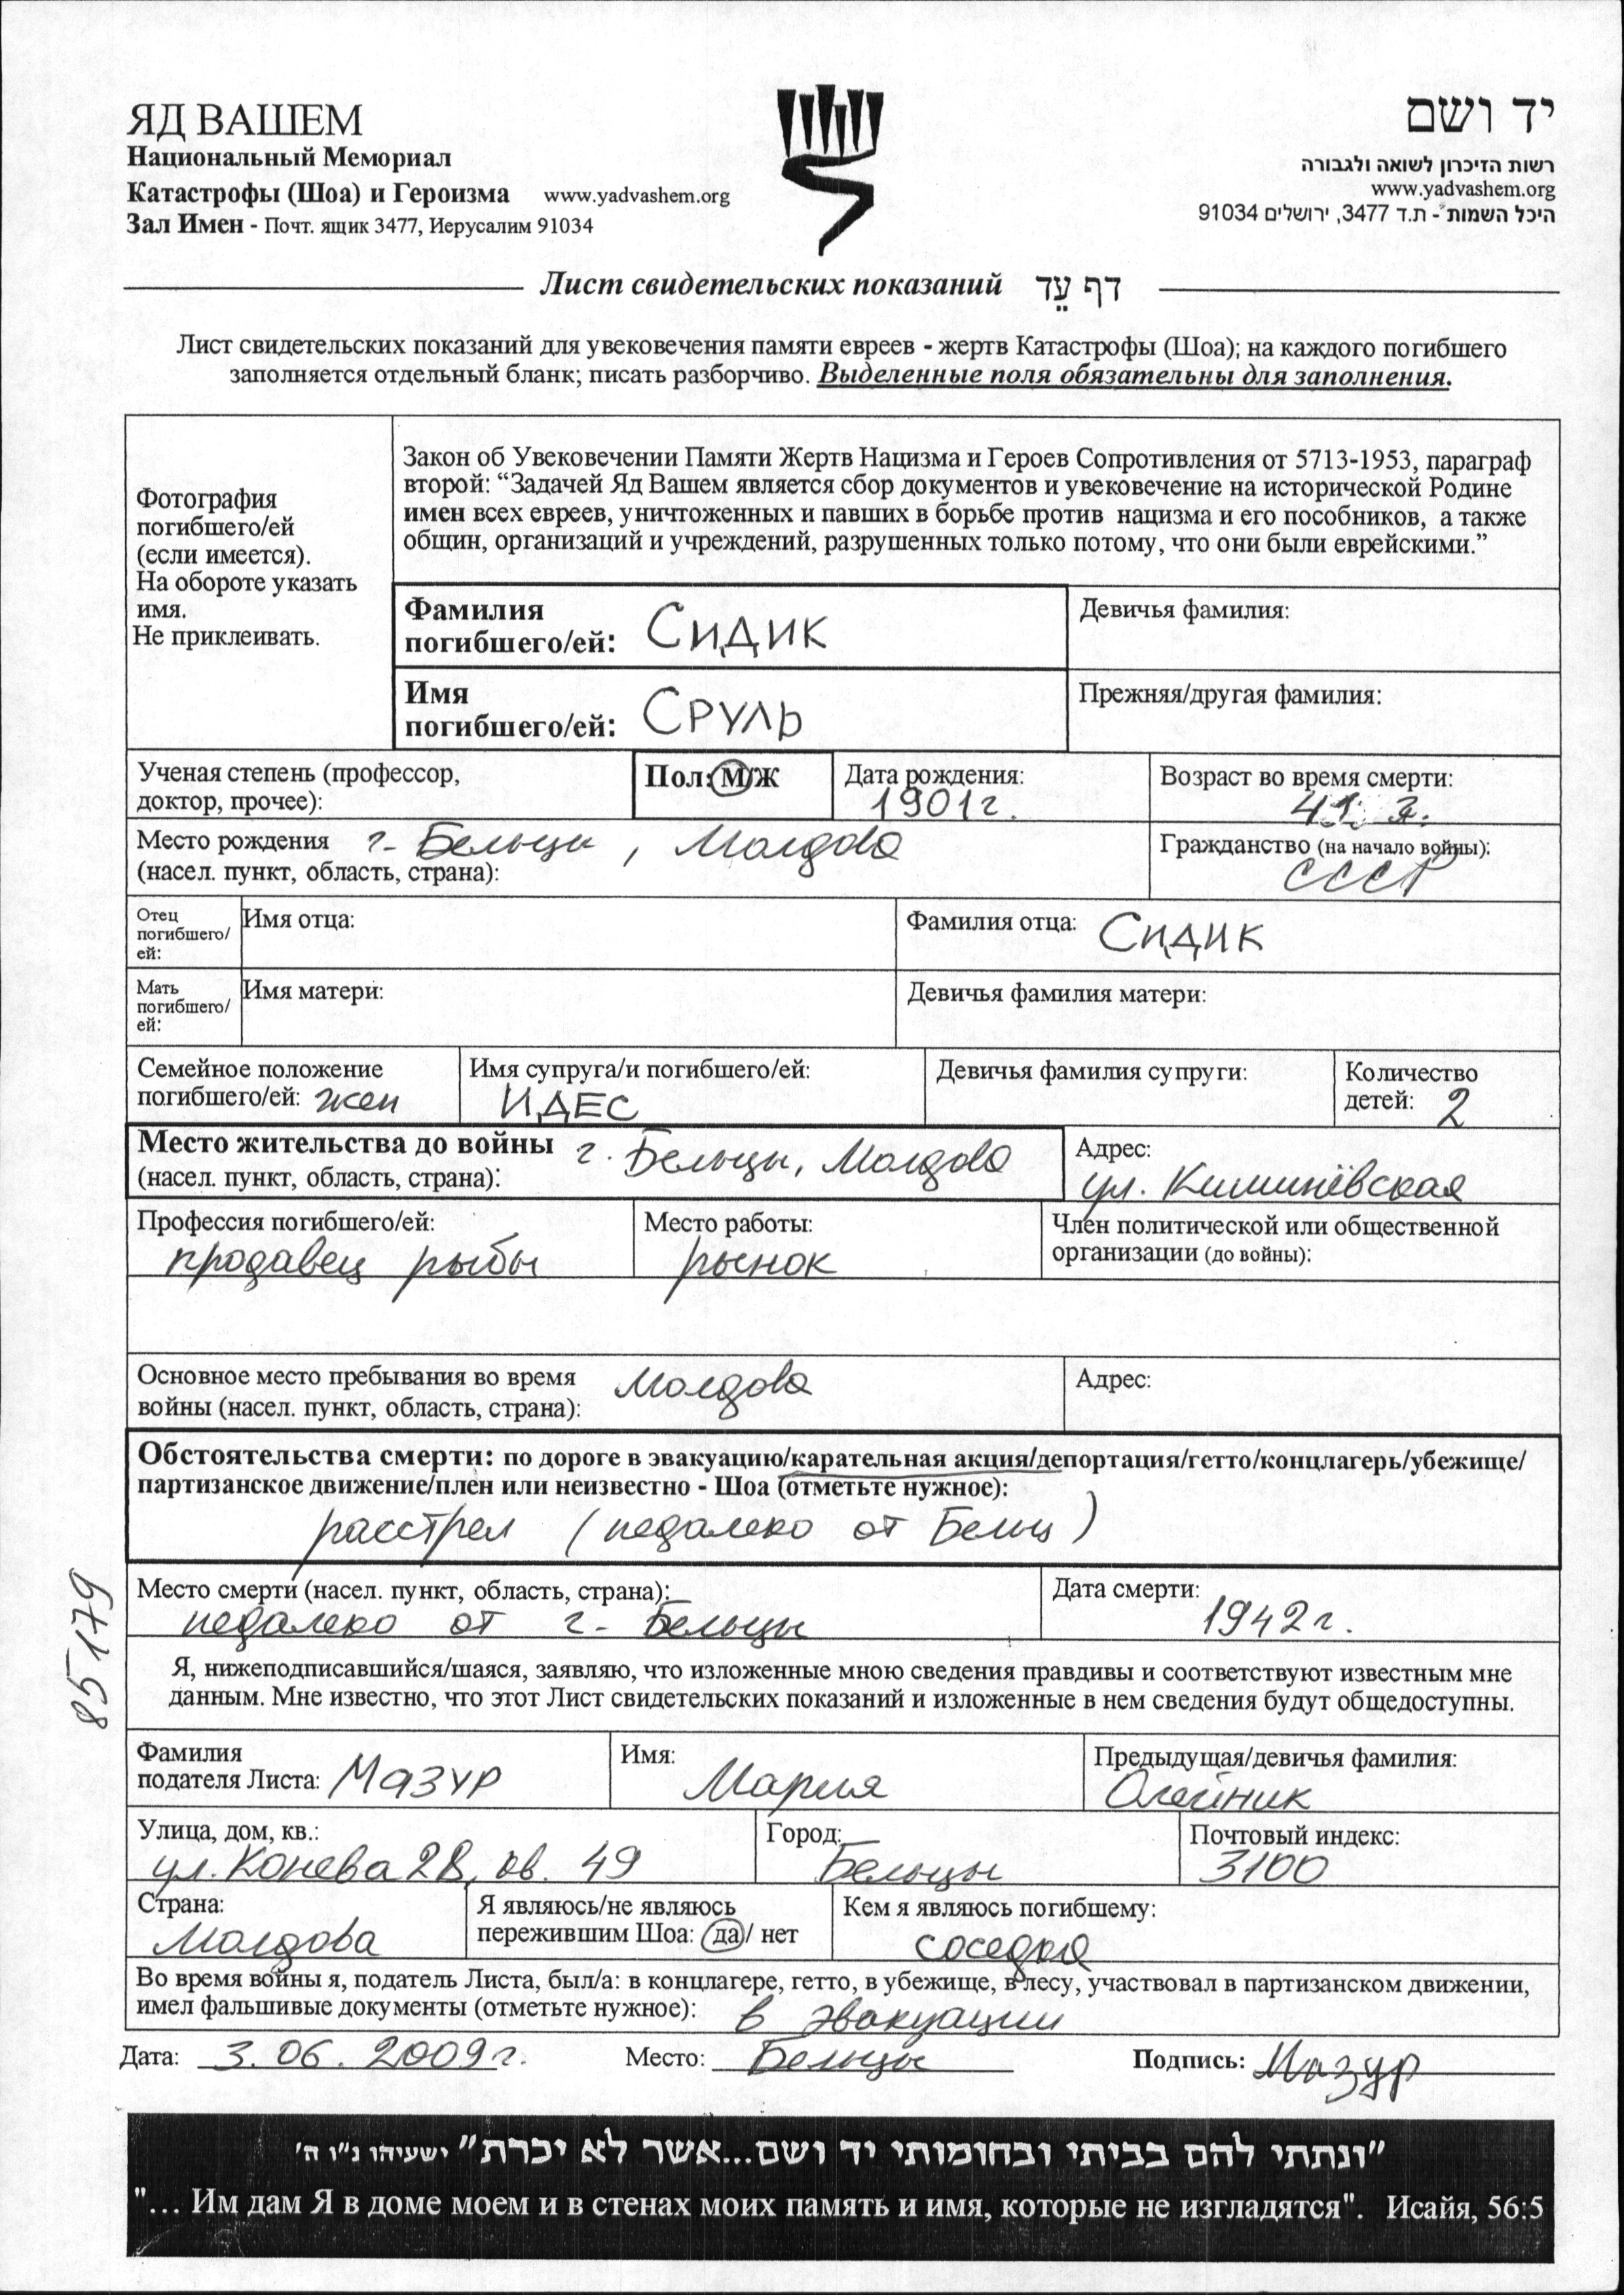 ЯД ВАШЕМ
Национальный Мемориал
Катастрофы (Шоа) и Героизма www.yadvashem.org
Зал Имен - Почт. ящик 3477, Иерусалим 91034
יד ושם
רשות הזיכרון לשואה ולגבורה
www.yadvashem.org
היכל השמות - ת.ד 3477, ירושלים 91034
Лист свидетельских показаний דף עֵד
Лист свидетельских показаний для увековечения памяти евреев - жертв Катастрофы (Шоа); на каждого погибшего
заполняется отдельный бланк; писать разборчиво. Выделенные поля обязательны для заполнения.
Фотография
погибшего/ей
(если имеется).
На обороте указать
имя.
Не приклеивать.
Закон об Увековечении Памяти Жертв Нацизма и Героев Сопротивления от 5713-1953, параграф
второй: “Задачей Яд Вашем является сбор документов и увековечение на исторической Родине
имен всех евреев, уничтоженных и павших в борьбе против нацизма и его пособников, а также
общин, организаций и учреждений, разрушенных только потому, что они были еврейскими.”
Фамилия
погибшего/ей: СИДИК
Девичья фамилия:
Имя
погибшего/ей: СРУЛЬ
Прежняя/другая фамилия:
Ученая степень (профессор,
доктор, прочее):
Пол: М/Ж
Дата рождения:
1901г.
Возраст во время смерти:
41
Место рождения г. Бельцы, Молдова
(насел. пункт, область, страна):
Гражданство (на начало войны):
СССР
Отец
погибшего/
ей:
Имя отца:
Фамилия отца: СИДИК
Мать
погибшего/
ей:
Имя матери:
Девичья фамилия матери:
Семейное положение
погибшего/ей: жен
Имя супруга/и погибшего/ей:
ИДЕС
Девичья фамилия супруги:
Количество
детей: 2
Место жительства до войны г. Бельцы, Молдова
(насел. пункт, область, страна):
Адрес:
ул. Кишинёвская
Профессия погибшего/ей:
продавец рыбы
Место работы:
рынок
Член политической или общественной
организации (до войны):
Основное место пребывания во время Молдова
войны (насел. пункт, область, страна):
Адрес:
Обстоятельства смерти: по дороге в эвакуацию/карательная акция/депортация/гетто/концлагерь/убежище/
партизанское движение/плен или неизвестно - Шоа (отметьте нужное):
расстрел (недалеко от Бельц)
Место смерти (насел. пункт, область, страна):
недалеко от г. Бельцы
Дата смерти:
1942г.
85179
Я, нижеподписавшийся/шаяся, заявляю, что изложенные мною сведения правдивы и соответствуют известным мне
данным. Мне известно, что этот Лист свидетельских показаний и изложенные в нем сведения будут общедоступны.
Фамилия
подателя Листа: МАЗУР
Имя:
Мария
Предыдущая/девичья фамилия:
Олейник
Улица, дом, кв.:
ул. Конева 28, кв. 49
Город:
Бельцы
Почтовый индекс:
3100
Страна:
Молдова
Я являюсь/не являюсь
пережившим Шоа: да/ нет
Кем я являюсь погибшему:
соседка
Во время войны я, податель Листа, был/а: в концлагере, гетто, в убежище, в лесу, участвовал в партизанском движении,
имел фальшивые документы (отметьте нужное): в эвакуации
Дата: 3.06.2009г. Место: Бельцы Подпись: Мазур
"ונתתי להם בביתי ובחומותי יד ושם...אשר לא יכרת" ישעיהו נ"ו ה'
"... Им дам Я в доме моем и в стенах моих память и имя, которые не изгладятся". Исайя, 56:5